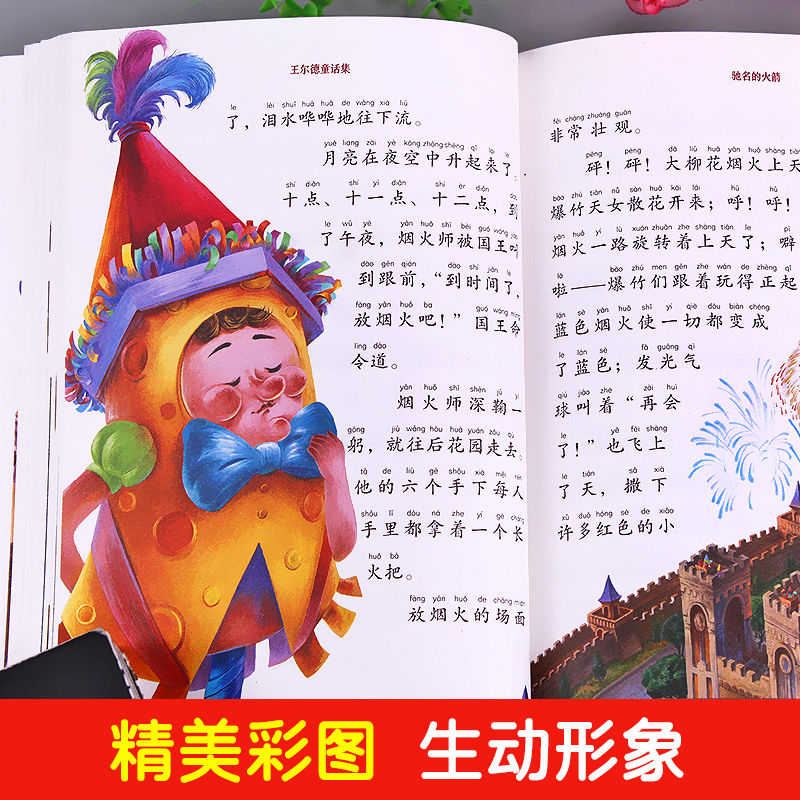 王尔德童话集
le lèi shuǐ huā huā de wǎng xià liú
了，泪水哗哗地往下流。
yuè liang zài yè kōng zhōng shēng qǐ lái le
月亮在夜空中升起来了。
shí diǎn shí yī diǎn shí èr diǎn dào
十点、十一点、十二点，到
le wǔ yè yān huǒ shī bèi guó wáng jiào
了午夜，烟火师被国王叫
dào gēn qián dào shí jiān le
到跟前，“到时间了，
fàng yān huǒ ba guó wáng mìng
放烟火吧！”国王命
lìng dào
令道。
yān huǒ shī shēn jū yì
烟火师深鞠一
gōng jiù wǎng hòu huā yuán zǒu qù
躬，就往后花园走去。
tā de liù gè shǒu xià měi rén
他的六个手下每人
shǒu lǐ dōu ná zhe yí gè cháng
手里都拿着一个长
huǒ bǎ
火把。
fàng yān huǒ de chǎng miàn
放烟火的场面
驰名的火箭
fēi cháng zhuàng guān
非常壮观。
pēng pēng dà liǔ huā yān huǒ shàng tiān
砰！砰！大柳花烟火上天
bào zhú tiān nǚ sàn huā kāi lái hū hū
爆竹天女散花开来；呼！呼！
yān huǒ yí lù xuán zhuǎn zhe shàng tiān le pī
烟火一路旋转着上天了；噼
lā bào zhú men gēn zhe wán de zhèng qǐ
啦——爆竹们跟着玩得正起
lán sè yān huǒ shǐ yí qiè dōu biàn chéng
蓝色烟火使一切都变成
le lán sè fā guāng qì
了蓝色；发光气
qiú jiào zhe zài huì
球叫着“再会
le yě fēi shàng
了！”也飞上
le tiān sǎ xià
了天，撒下
xǔ duō hóng sè de xiǎo
许多红色的小
精美彩图 生动形象